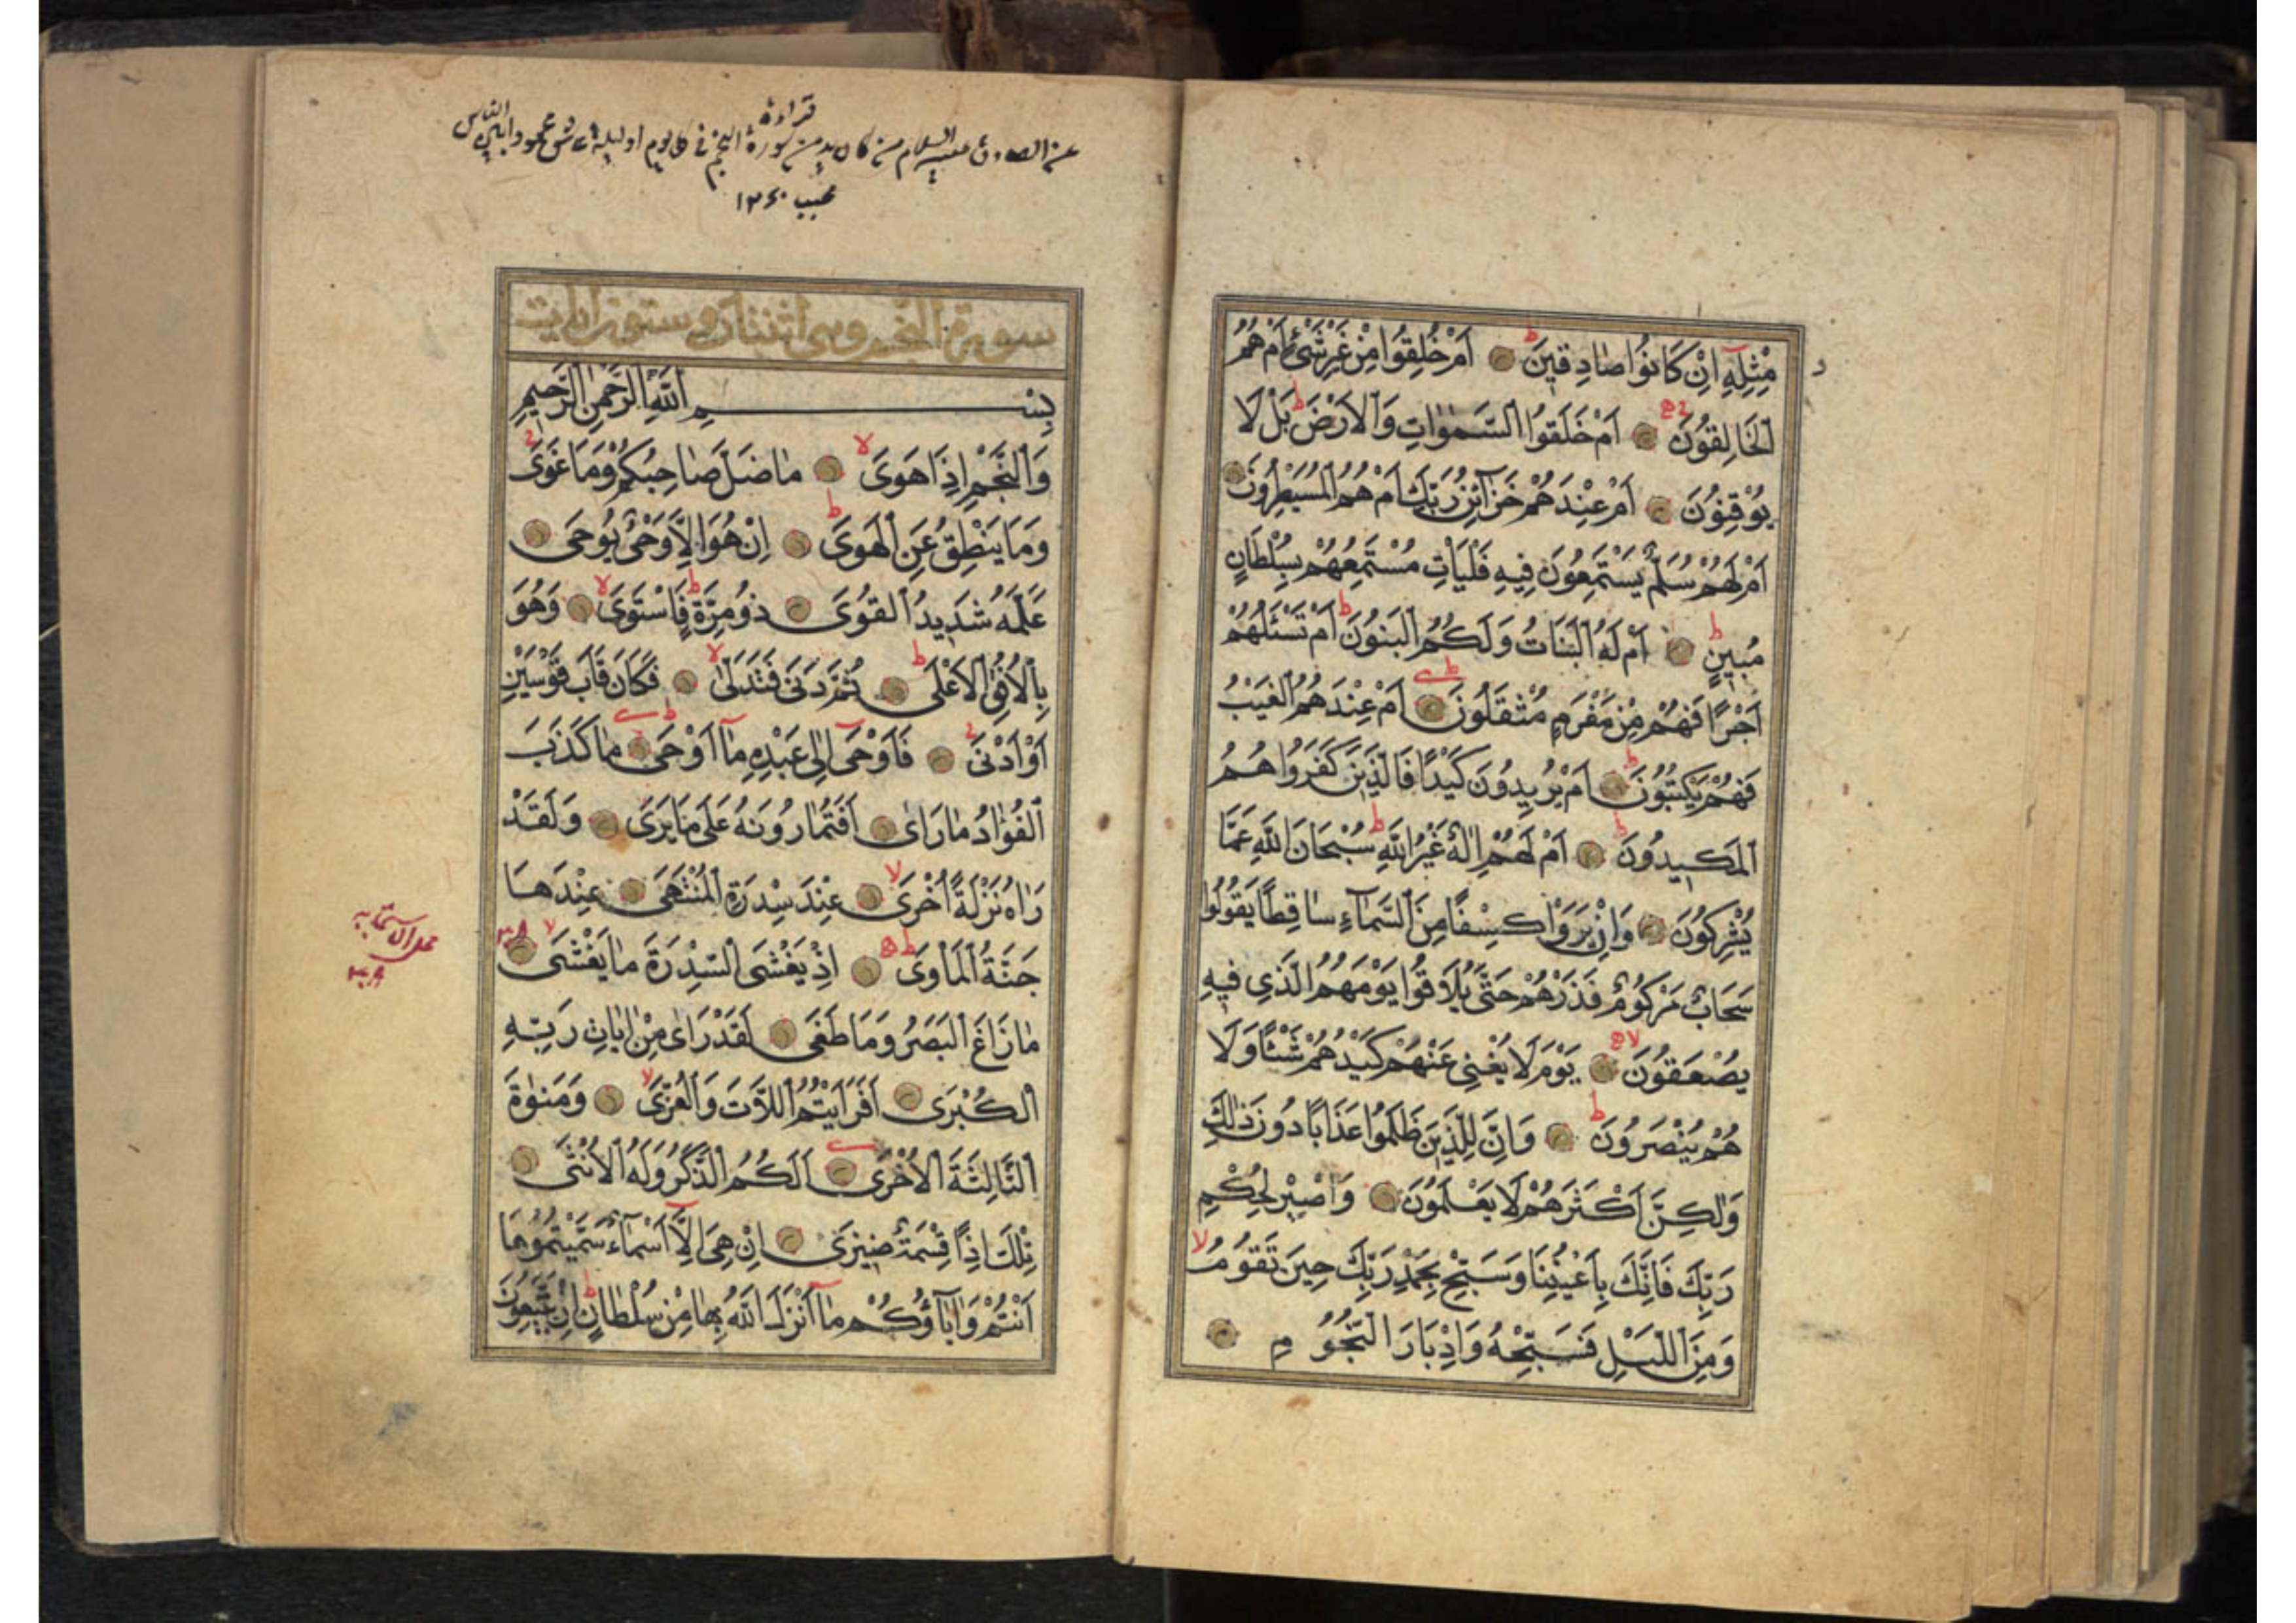 مِثْلِهِ اِنْ كَانُوا صَادِقِينَ ط اَمْ خُلِقُوا مِنْ غَيْرِ شَيْءٍ اَمْ هُمُ
الْخَالِقُونَ اَمْ خَلَقُوا السَّمٰوَاتِ وَالْاَرْضَ ط بَلْ لَا
يُوقِنُونَ اَمْ عِنْدَهُمْ خَزَآئِنُ رَبِّكَ اَمْ هُمُ الْمُسَيْطِرُونَ
اَمْ لَهُمْ سُلَّمٌ يَسْتَمِعُونَ فِيهِ فَلْيَاْتِ مُسْتَمِعُهُمْ بِسُلْطَانٍ
مُبِينٍ ط اَمْ لَهُ الْبَنَاتُ وَلَكُمُ الْبَنُونَ ط اَمْ تَسْئَلُهُمْ
اَجْرًا فَهُمْ مِنْ مَغْرَمٍ مُثْقَلُونَ ط اَمْ عِنْدَهُمُ الْغَيْبُ
فَهُمْ يَكْتُبُونَ ط اَمْ يُرِيدُونَ كَيْدًا فَالَّذِينَ كَفَرُوا هُمُ
الْمَكِيدُونَ ط اَمْ لَهُمْ اِلٰهٌ غَيْرُ اللّٰهِ ط سُبْحَانَ اللّٰهِ عَمَّا
يُشْرِكُونَ وَاِنْ يَرَوْا كِسْفًا مِنَ السَّمَآءِ سَاقِطًا يَقُولُوا
سَحَابٌ مَرْكُومٌ فَذَرْهُمْ حَتَّى يُلَاقُوا يَوْمَهُمُ الَّذِي فِيهِ
يُصْعَقُونَ لا يَوْمَ لَا يُغْنِي عَنْهُمْ كَيْدُهُمْ شَيْئًا وَلَا
هُمْ يُنْصَرُونَ ط وَاِنَّ لِلَّذِينَ ظَلَمُوا عَذَابًا دُونَ ذٰلِكَ
وَلٰكِنَّ اَكْثَرَهُمْ لَا يَعْلَمُونَ وَاصْبِرْ لِحُكْمِ
رَبِّكَ فَاِنَّكَ بِاَعْيُنِنَا وَسَبِّحْ بِحَمْدِ رَبِّكَ حِينَ تَقُومُ لا
وَمِنَ اللَّيْلِ فَسَبِّحْهُ وَاِدْبَارَ النُّجُومِ
قراءة
عن الصادق عليه السلام من كان يدمن سورة النجم في كل يوم او ليلة عاش محمودا بين الناس
١٢٦٠
سورة النجم وهي اثنتان وستون ايات
بِسْمِ اللّٰهِ الرَّحْمٰنِ الرَّحِيمِ
وَالنَّجْمِ اِذَا هَوَى لا مَا ضَلَّ صَاحِبُكُمْ وَمَا غَوَى
وَمَا يَنْطِقُ عَنِ الْهَوَى ط اِنْ هُوَ اِلَّا وَحْيٌ يُوحَى
عَلَّمَهُ شَدِيدُ الْقُوَى ذُو مِرَّةٍ ط فَاسْتَوَى لا وَهُوَ
بِالْاُفُقِ الْاَعْلَى ط ثُمَّ دَنَى فَتَدَلَّى لا فَكَانَ قَابَ قَوْسَيْنِ
اَوْ اَدْنَى فَاَوْحَى اِلَى عَبْدِهِ مَآ اَوْحَى ط مَا كَذَبَ
الْفُؤَادُ مَا رَاٰى اَفَتُمَارُونَهُ عَلَى مَا يَرَى وَلَقَدْ
رَاٰهُ نَزْلَةً اُخْرَى لا عِنْدَ سِدْرَةِ الْمُنْتَهَى عِنْدَهَا
جَنَّةُ الْمَاْوَى ط اِذْ يَغْشَى السِّدْرَةَ مَا يَغْشَى لا
مَا زَاغَ الْبَصَرُ وَمَا طَغَى لَقَدْ رَاٰى مِنْ اٰيَاتِ رَبِّهِ
الْكُبْرَى اَفَرَاَيْتُمُ اللَّاتَ وَالْعُزَّى لا وَمَنٰوةَ
الثَّالِثَةَ الْاُخْرَى اَلَكُمُ الذَّكَرُ وَلَهُ الْاُنْثَى
تِلْكَ اِذًا قِسْمَةٌ ضِيزَى اِنْ هِيَ اِلَّآ اَسْمَآءٌ سَمَّيْتُمُوهَا
اَنْتُمْ وَاٰبَآؤُكُمْ مَآ اَنْزَلَ اللّٰهُ بِهَا مِنْ سُلْطَانٍ ط اِنْ يَتَّبِعُونَ